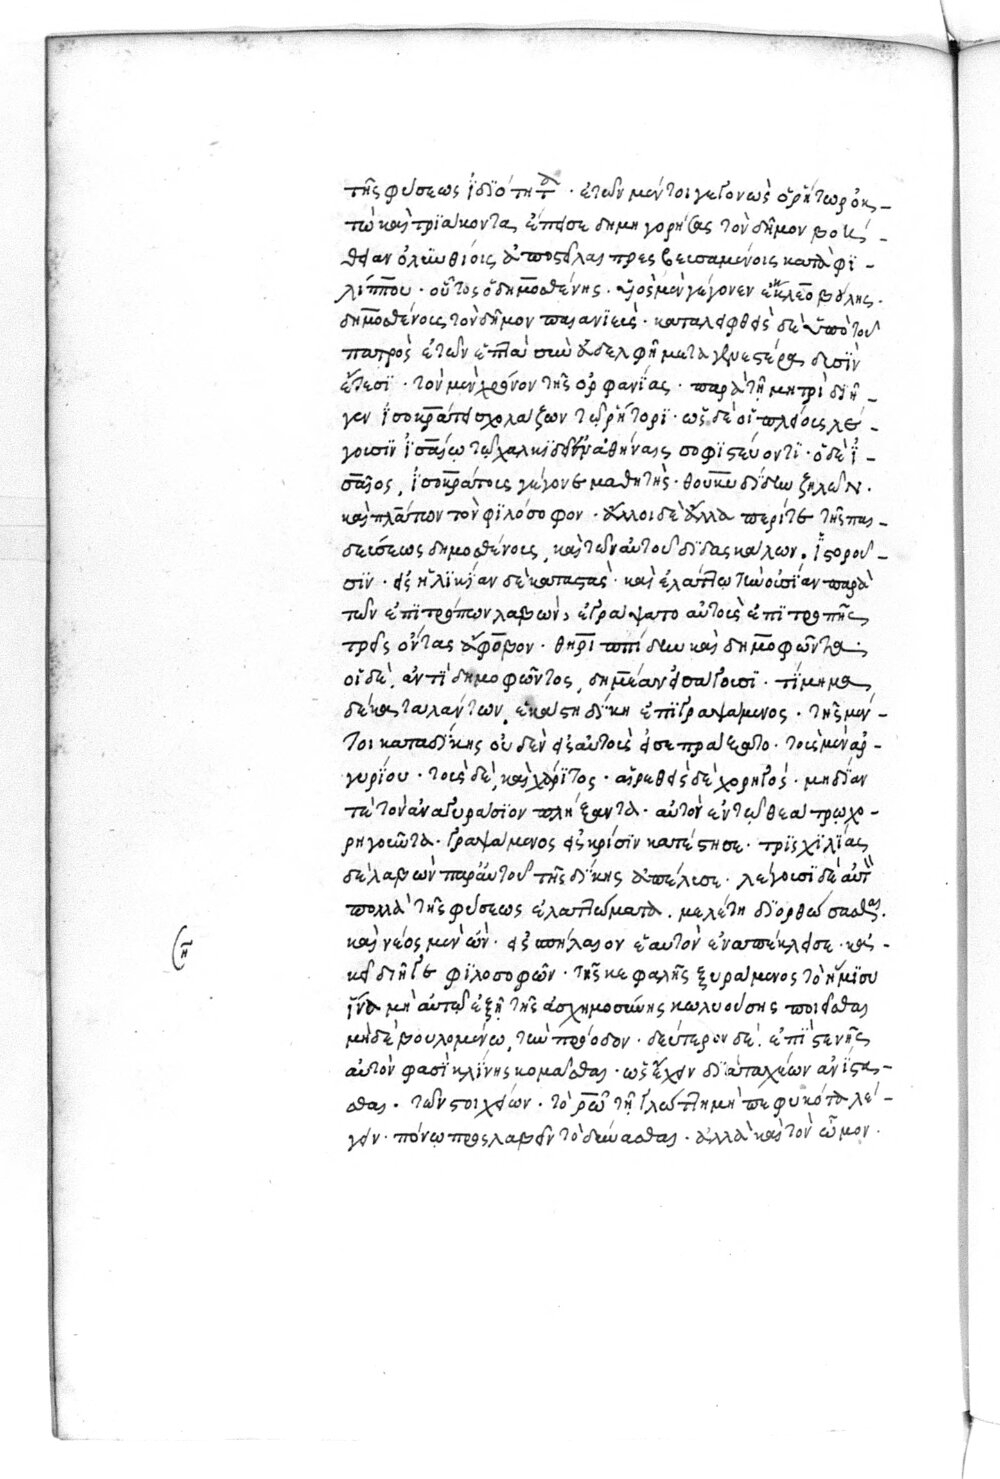 τῆς φύσεως ἰδιότητα · ἐτῶν μέντοι γεγονὼς ὁ ῥήτωρ ὀκ-
τὼ καὶ τριάκοντα, ἔπεισε δημηγορήσας τὸν δῆμον βοή-
θειαν ὀλυνθίοις ἀποστεῖλαι πρεσβευσαμένοις κατὰ φι-
λίππου · οὗτος ὁ δημοσθένης · υἱὸς μὲν γέγονεν ἐκ κλεοβούλης ·
δημοσθένους τὸν δῆμον παιανιεὺς · καταλειφθεὶς δὲ ὑπὸ τοῦ
πατρὸς ἐτῶν ἑπτὰ σὺν ἀδελφῇ μετὰ νεωτέρα δυσὶν
ἔτεσι · τὸν μὲν χρόνον τῆς ὀρφανίας · παρὰ τῇ μητρὶ διῆ-
γεν ἰσοκράτει σχολάζων τῷ ῥήτορι · ὡς δὲ οἱ πλείους λέ-
γουσιν ἰσαίῳ τῷ χαλκιδεῖ ἐν ἀθήναις σοφιστεύοντι · ὁ δὲ ἰ-
σαῖος, ἰσοκράτους γέγονε μαθητὴς · θουκυδίδην ζηλῶν ·
καὶ πλάτωνα τὸν φιλόσοφον · ἄλλοι δὲ ἄλλα περί τε τῆς παι-
δεύσεως δημοσθένους, καὶ τῶν αὐτοῦ διδασκάλων. ἱστοροῦ-
σιν · εἰς ἡλικίαν δὲ καταστὰς · καὶ ἐλάττω τὴν οὐσίαν παρὰ
τῶν ἐπιτρόπων λαβὼν, ἐγράψατο αὐτοὺς ἐπιτροπῆς
τρεῖς ὄντας ἄφοβον · θηριππίδην καὶ δημοφῶντα ·
οἱ δὲ, ἀντὶ δημοφῶντος, δημέαν εἰσάγουσι · τίμημα
δέκα ταλάντων, ἑκάστη δίκη ἐπιγραψάμενος · τῆς μέν-
τοι καταδίκης οὐδὲν ἐξ αὐτοὺς εἰσεπράξατο · τοῖς μὲν ἀρ-
γυρίου · τοῖς δὲ, καὶ χάριτος · αἱρεθεὶς δὲ χορηγός · μηδίαν
τε τὸν ἀναγυράσιον πλήξαντα · αὐτὸν ἐν τῷ θεάτρῳ χο-
ρηγοῦντα · γραψάμενος εἰς κρίσιν κατέστησε · τρισχιλίας
δὲ λαβὼν παρ' αὐτοῦ τῆς δίκης ἀπέλυσε · λέγουσι δὲ αὐτὸν
πολλὰ τῆς φύσεως ἐλαττώματα. μελέτῃ διορθώσασθαι.
καὶ νέος μὲν ὢν · εἰς σπήλαιον ἑαυτὸν ἐναπέκλεισε · κἀ-
κεῖ διῆγε φιλοσοφῶν · τῆς κεφαλῆς ξυράμενος τὸ ἥμισυ
ἵνα μὴ αὐτῷ ἐξῇ τῆς ἀσχημοσύνης κωλυούσης ποιεῖσθαι
μηδὲ βουλομένῳ, τὴν πρόοδον · δεύτερον δὲ. ἐπὶ στενῆς
αὐτὸν φασὶ κλίνης κοιμᾶσθαι · ὡς ἔχειν διὰ ταχέων ἀνίστα-
σθαι · τῶν στοιχείων · τὸ ρῶ τῇ γλώττῃ μὴ πεφυκότα λέ-
γειν · πόνῳ προσλαβεῖν τὸ δύνασθαι · ἀλλὰ καὶ τὸν ὦμον ·